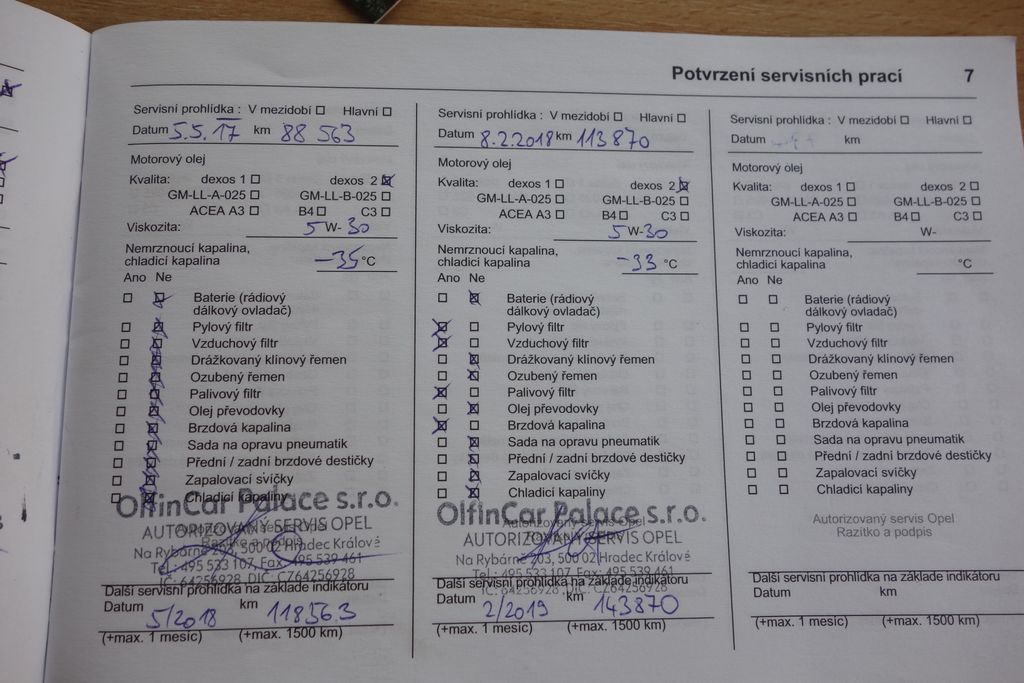 Potvrzení servisních prací 7
Servisní prohlídka : V mezidobí ☐ Hlavní ☐
Datum 5.5.17 km 88 563
Motorový olej
Kvalita: dexos 1 ☐ dexos 2 ☒
GM-LL-A-025 ☐ GM-LL-B-025 ☐
ACEA A3 ☐ B4 ☐ C3 ☐
Viskozita: 5 W-30
Nemrznoucí kapalina,
chladicí kapalina -35 °C
Ano Ne
☐ ☒ Baterie (rádiový
dálkový ovladač)
☐ ☒ Pylový filtr
☐ ☒ Vzduchový filtr
☐ ☒ Drážkovaný klínový řemen
☐ ☒ Ozubený řemen
☐ ☒ Palivový filtr
☐ ☒ Olej převodovky
☐ ☒ Brzdová kapalina
☐ ☒ Sada na opravu pneumatik
☐ ☒ Přední / zadní brzdové destičky
☐ ☒ Zapalovací svíčky
☐ ☒ Chladicí kapaliny
OlfinCar Palace s.r.o.
AUTORIZOVANÝ SERVIS OPEL
Autorizovaný servis Opel
Razítko a podpis
Na Rybárně 203, 500 02 Hradec Králové
Tel.: 495 533 107, Fax: 495 539 461
IČ: 64256928, DIČ: CZ64256928
Další servisní prohlídka na základe indikátoru
Datum 5/2018 km 118563
(+max. 1 mesíc) (+max. 1500 km)
Servisní prohlídka : V mezidobí ☐ Hlavní ☐
Datum 8.2.2018 km 113870
Motorový olej
Kvalita: dexos 1 ☐ dexos 2 ☒
GM-LL-A-025 ☐ GM-LL-B-025 ☐
ACEA A3 ☐ B4 ☐ C3 ☐
Viskozita: 5 W-30
Nemrznoucí kapalina,
chladicí kapalina -33 °C
Ano Ne
☐ ☒ Baterie (rádiový
dálkový ovladač)
☒ ☐ Pylový filtr
☒ ☐ Vzduchový filtr
☐ ☒ Drážkovaný klínový řemen
☐ ☒ Ozubený řemen
☒ ☐ Palivový filtr
☐ ☒ Olej převodovky
☒ ☐ Brzdová kapalina
☐ ☒ Sada na opravu pneumatik
☐ ☒ Přední / zadní brzdové destičky
☐ ☒ Zapalovací svíčky
☐ ☒ Chladicí kapaliny
OlfinCar Palace s.r.o.
Autorizovaný servis Opel
AUTORIZOVANÝ SERVIS OPEL
Na Rybárně 203, 500 02 Hradec Králové
Tel.: 495 533 107, Fax: 495 539 461
IČ: 64256928, DIČ: CZ64256928
Další servisní prohlídka na základe indikátoru
Datum 2/2019 km 143870
(+max. 1 mesíc) (+max. 1500 km)
Servisní prohlídka : V mezidobí ☐ Hlavní ☐
Datum km
Motorový olej
Kvalita: dexos 1 ☐ dexos 2 ☐
GM-LL-A-025 ☐ GM-LL-B-025 ☐
ACEA A3 ☐ B4 ☐ C3 ☐
Viskozita: W-
Nemrznoucí kapalina,
chladicí kapalina °C
Ano Ne
☐ ☐ Baterie (rádiový
dálkový ovladač)
☐ ☐ Pylový filtr
☐ ☐ Vzduchový filtr
☐ ☐ Drážkovaný klínový řemen
☐ ☐ Ozubený řemen
☐ ☐ Palivový filtr
☐ ☐ Olej převodovky
☐ ☐ Brzdová kapalina
☐ ☐ Sada na opravu pneumatik
☐ ☐ Přední / zadní brzdové destičky
☐ ☐ Zapalovací svíčky
☐ ☐ Chladicí kapaliny
Autorizovaný servis Opel
Razítko a podpis
Další servisní prohlídka na základe indikátoru
Datum km
(+max. 1 mesíc) (+max. 1500 km)